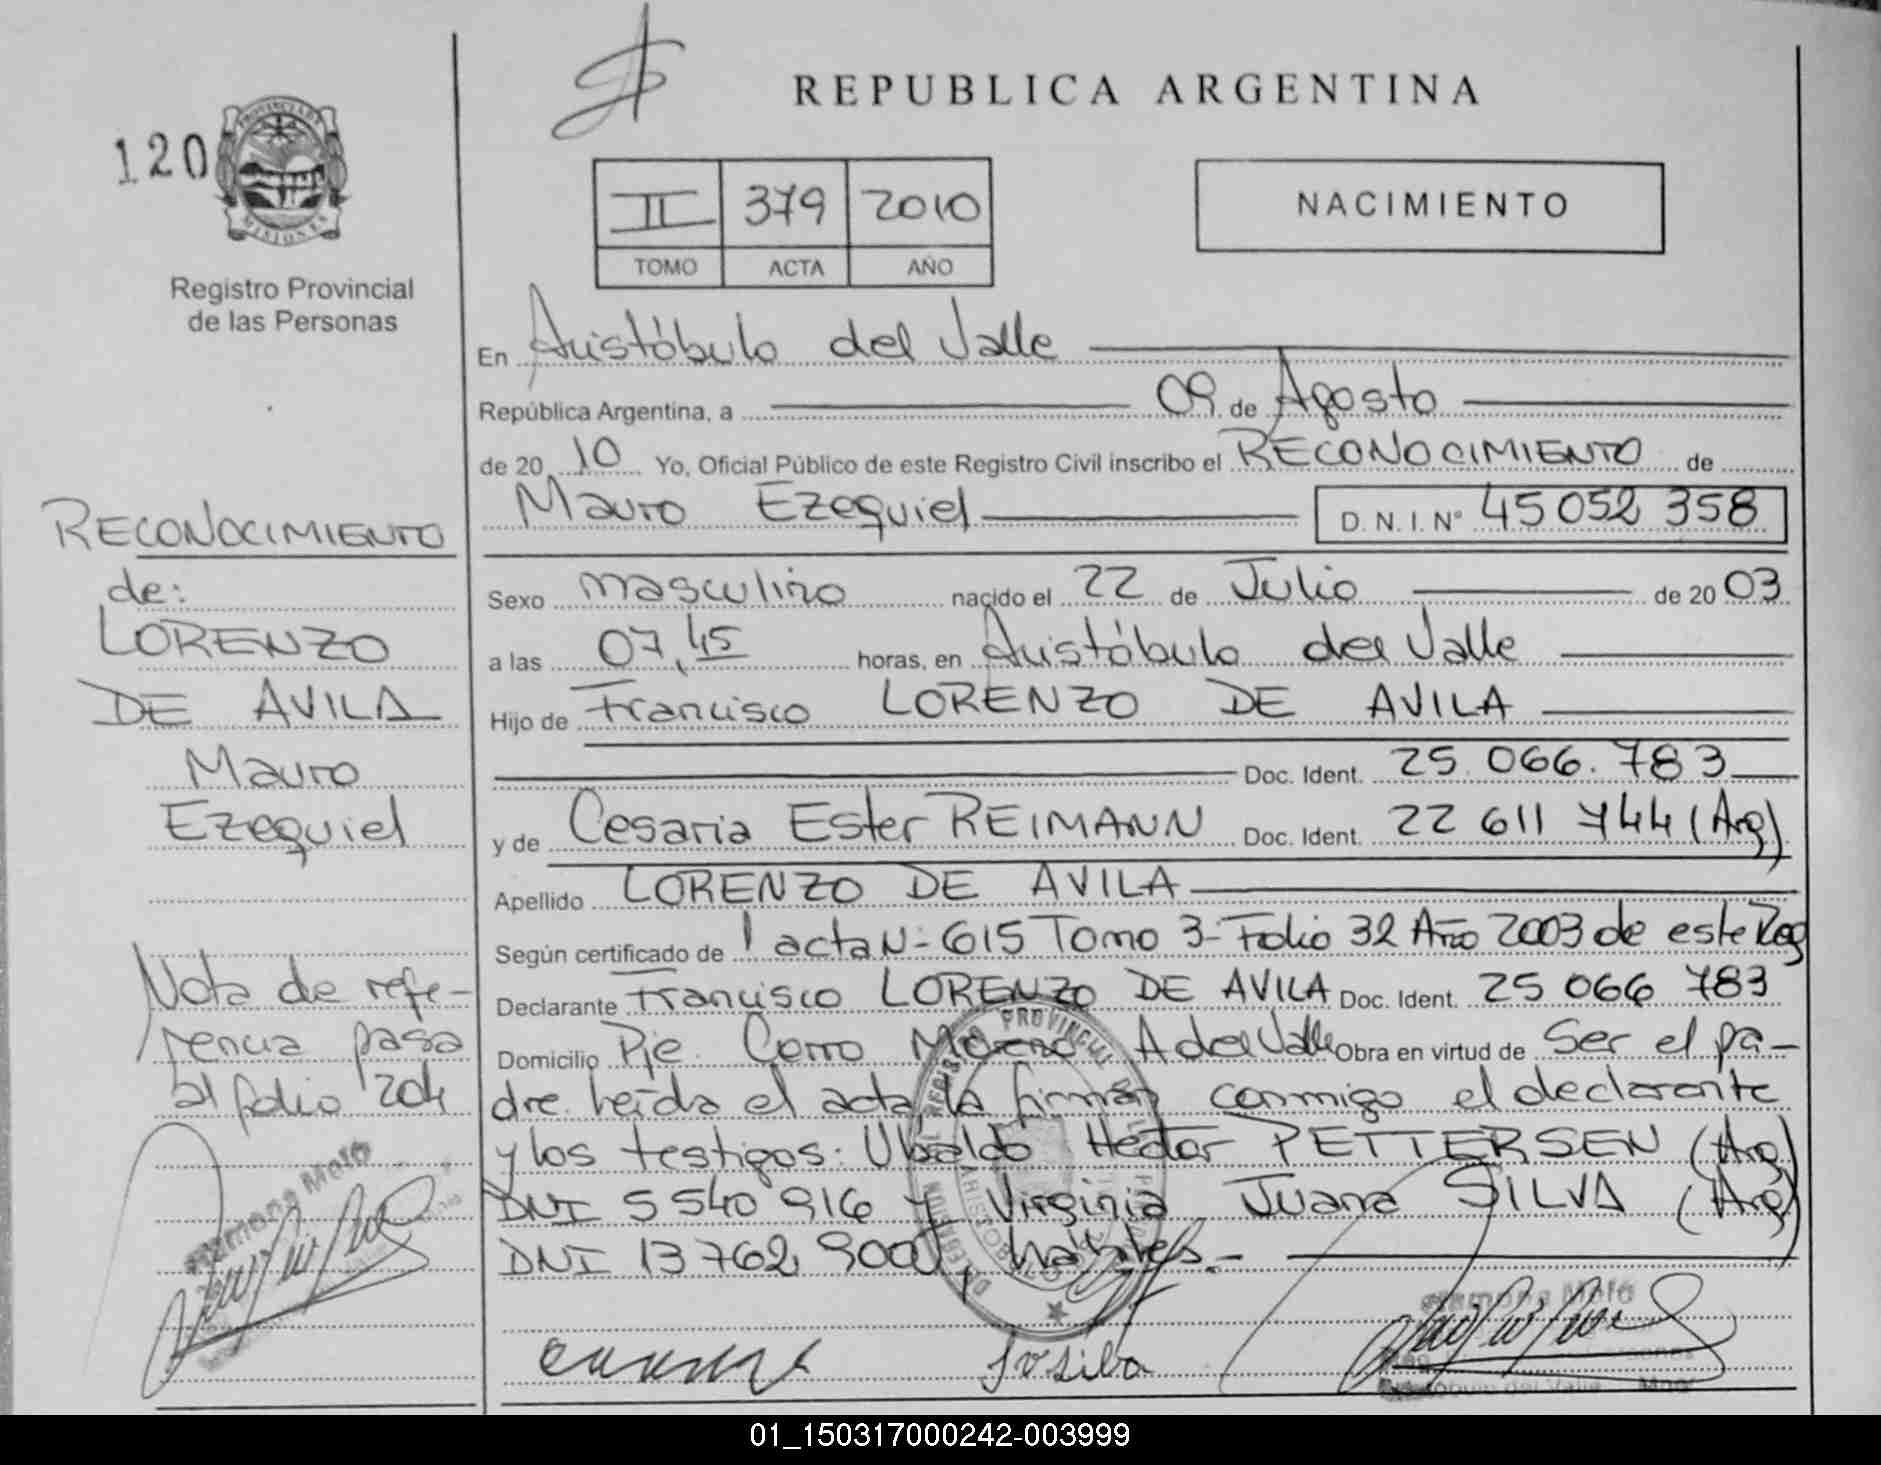 REPUBLICA ARGENTINA
120
PROVINCIA DE
MISIONES
Registro Provincial
de las Personas
II 379 2010
TOMO ACTA AÑO
NACIMIENTO
En Aristóbulo del Valle
República Argentina, a 09 de Agosto
de 20 10 Yo, Oficial Público de este Registro Civil inscribo el RECONOCIMIENTO de
Mauro Ezequiel D.N.I.Nº 45 052 358
Sexo masculino nacido el 22 de Julio de 20 03
a las 07,45 horas, en Aristóbulo del Valle
Hijo de Francisco LORENZO DE AVILA
Doc. Ident. 25.066.783
y de Cesaria Ester REIMANN Doc. Ident. 22 611 744 (Arg)
Apellido LORENZO DE AVILA
Según certificado de acta N- 615 Tomo 3- Folio 32 Año 2003 de este Reg
Declarante Francisco LORENZO DE AVILA Doc. Ident. 25 066 783
Domicilio Pje. Cerro Moreno A del Valle Obra en virtud de Ser el pa-
dre. Leída el acta, la firman conmigo el declarante
y los testigos: Ubaldo Hector PETTERSEN (Arg)
DNI 5 540 916 y Virginia Juana SILVA (Arg)
DNI 13 762 900, hábiles.-
RECONOCIMIENTO
de:
LORENZO
DE AVILA
Mauro
Ezequiel
Nota de refe-
rencia pasa
al folio 204
Ramona Melo
REGISTRO PROVINCIAL DE LAS
Ramona Melo
del Valle
01_150317000242-003999